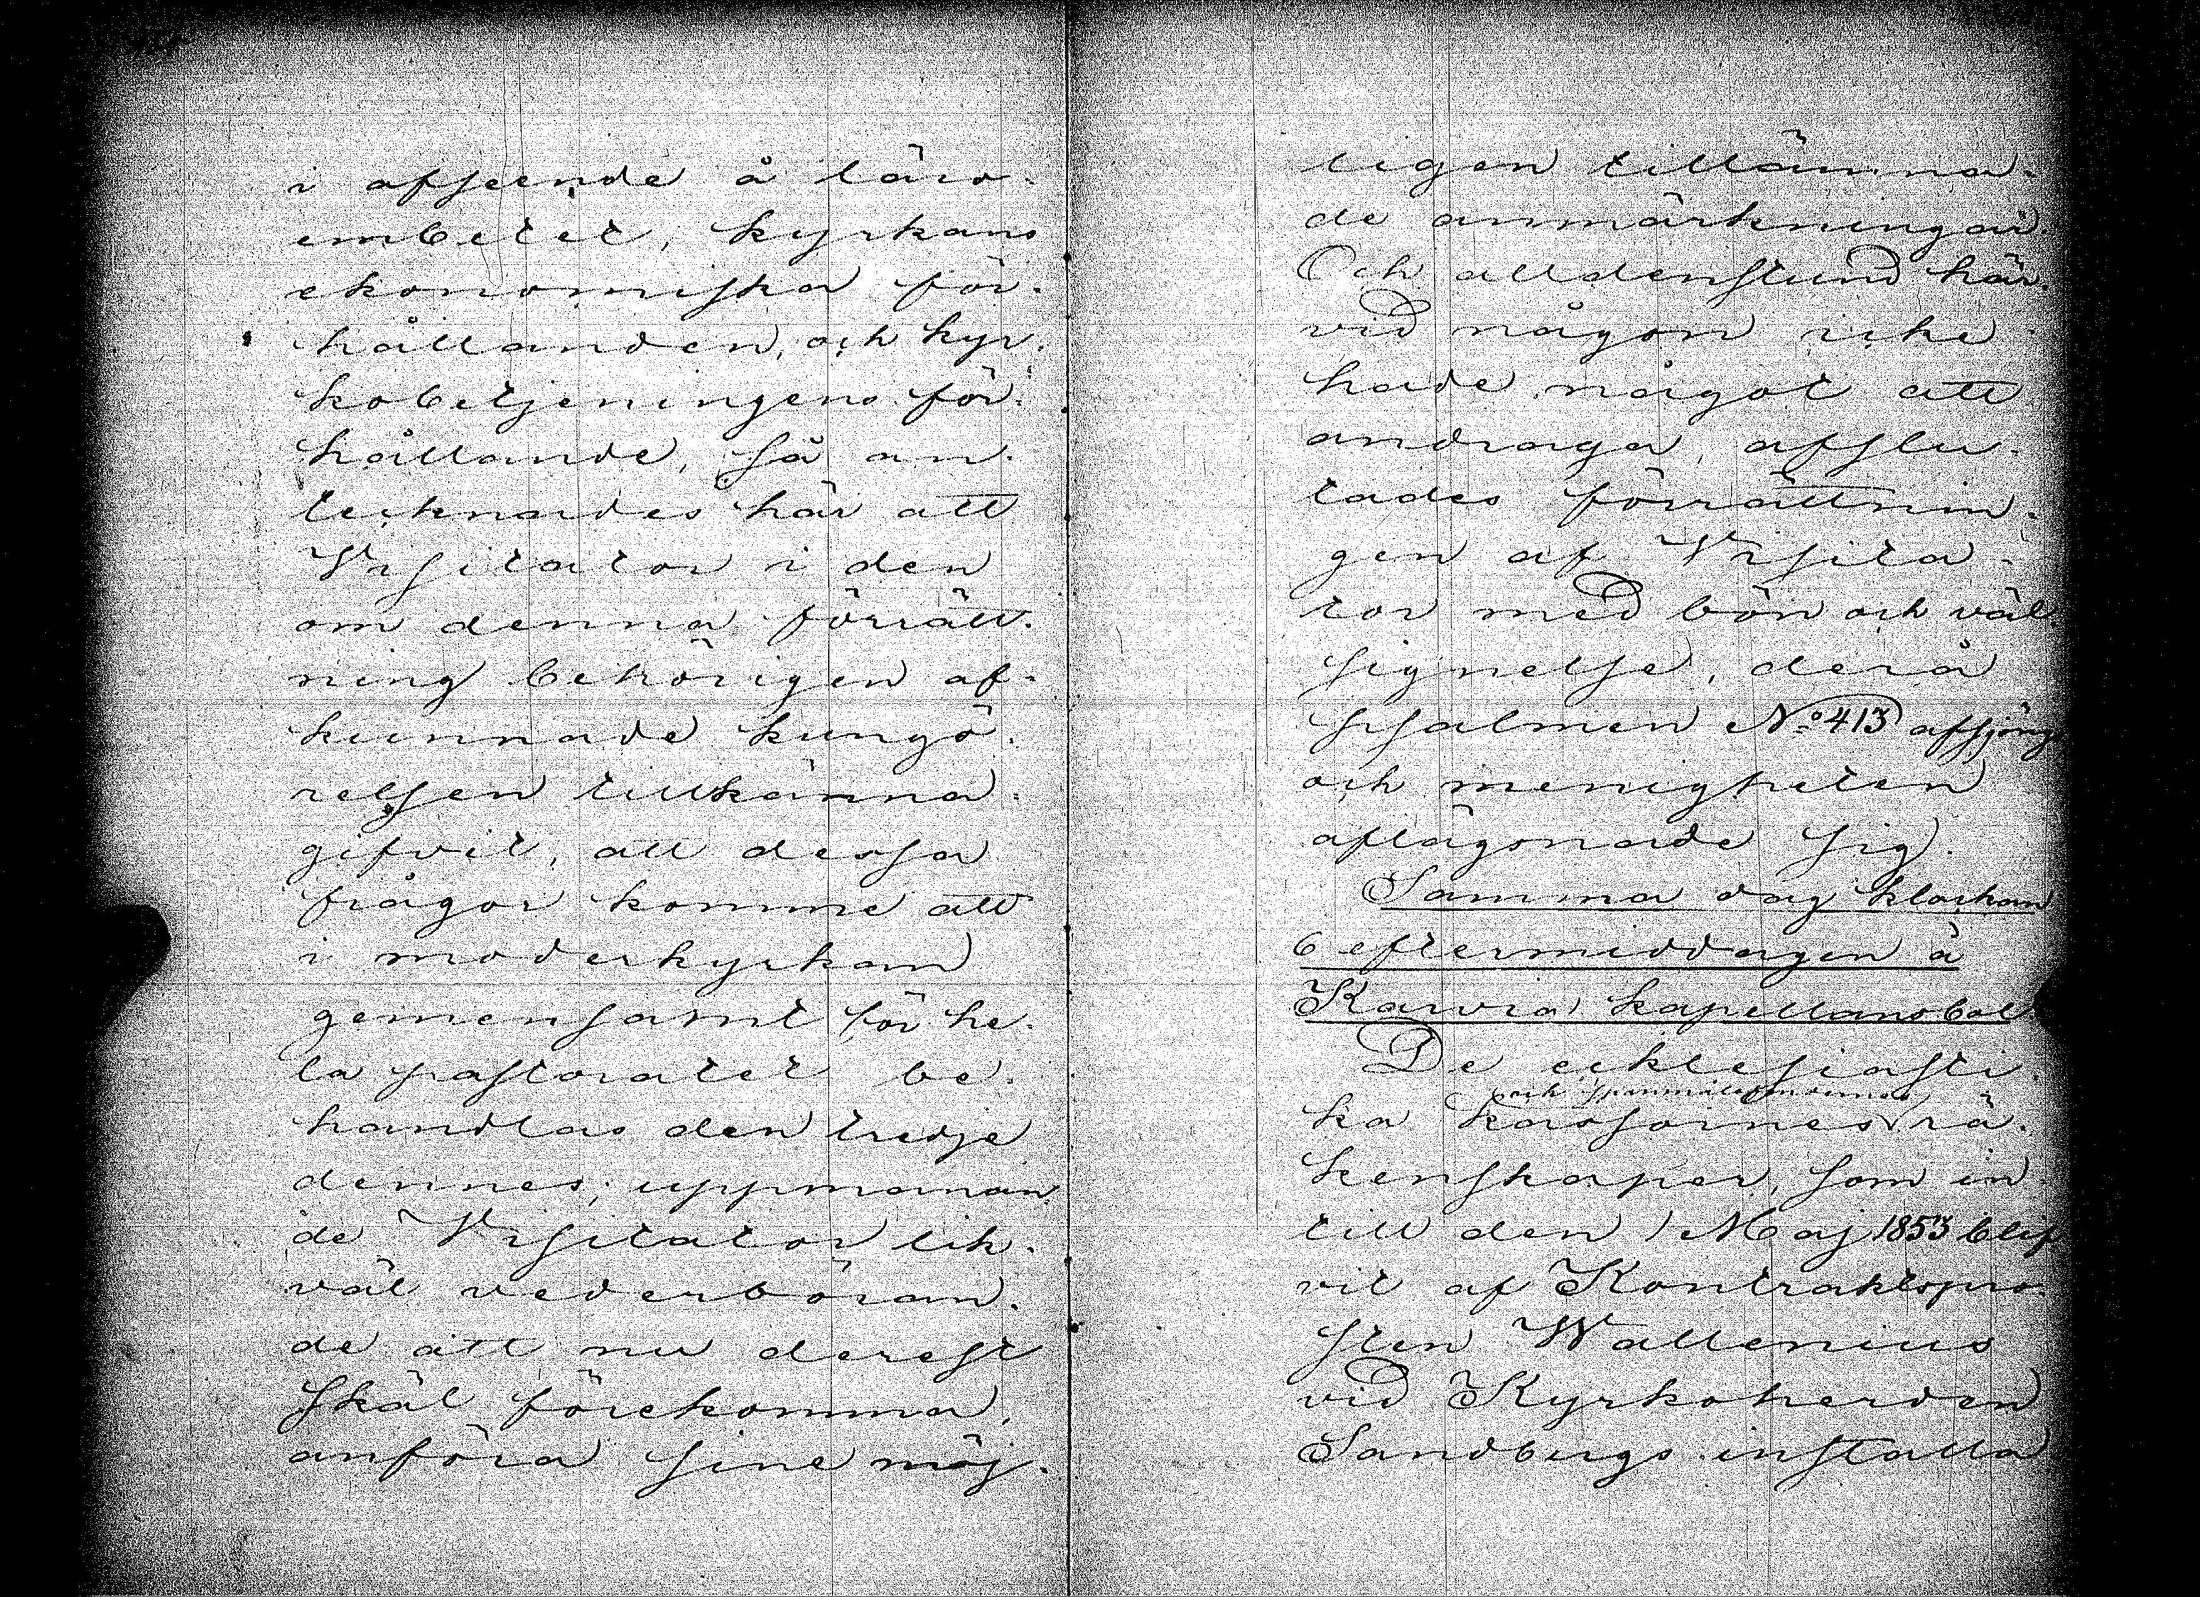 i afseende å läro-
embetet, kyrkans
ekonomiska för-
hållanden, och kyr-
kobetjeningens för-
hållande, så an-
tecknades här att
Visitator i den
om denna förrätt-
ning behörigen af-
kunnade kungö-
relsen tillkänna-
gifvit, att dessa
frågor komme att
i moderkyrkan
gemensamt för he-
la pastoratet be-
handlas den tredje
dennes; uppmanan-
de Visitator lik-
väl vederböran-
de att nu derest
skäl förekomma,
anföra sine möj-
ligen tillämna-
de anmärkningar.
Och alldenstund här-
vid någon icke
hade något att
andraga, afslu-
tades förrättnin-
gen af Visita-
tor med bön och väl-
signelse, derå
psalmen No 413 afsjöngs
och menigheten
aflägsnade sig.
Samma dag klockan
6 eftermiddagen å
Karvia kapellansbol.
De ecklesiasti-
och spanmålsmagasinernes
ka kassornes rä-
kenskaper, som in-
till den 1 Maj 1853 blif-
vit af Kontraktspro-
sten Wallenius
vid Kyrkoherden
Sandbergs installa